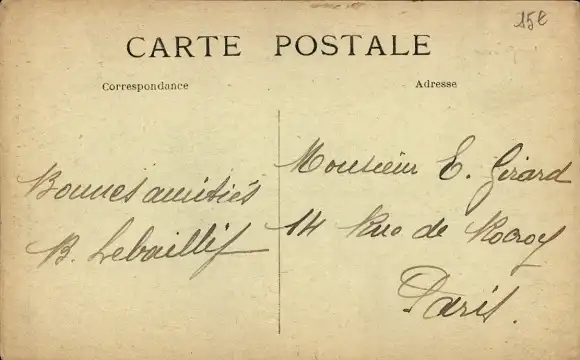 15€
CARTE POSTALE
Correspondance
Adresse
Bonnes amitiés
B. Lebaillif
Monsieur E. Girard
14 Rue de Rocroy
Paris.